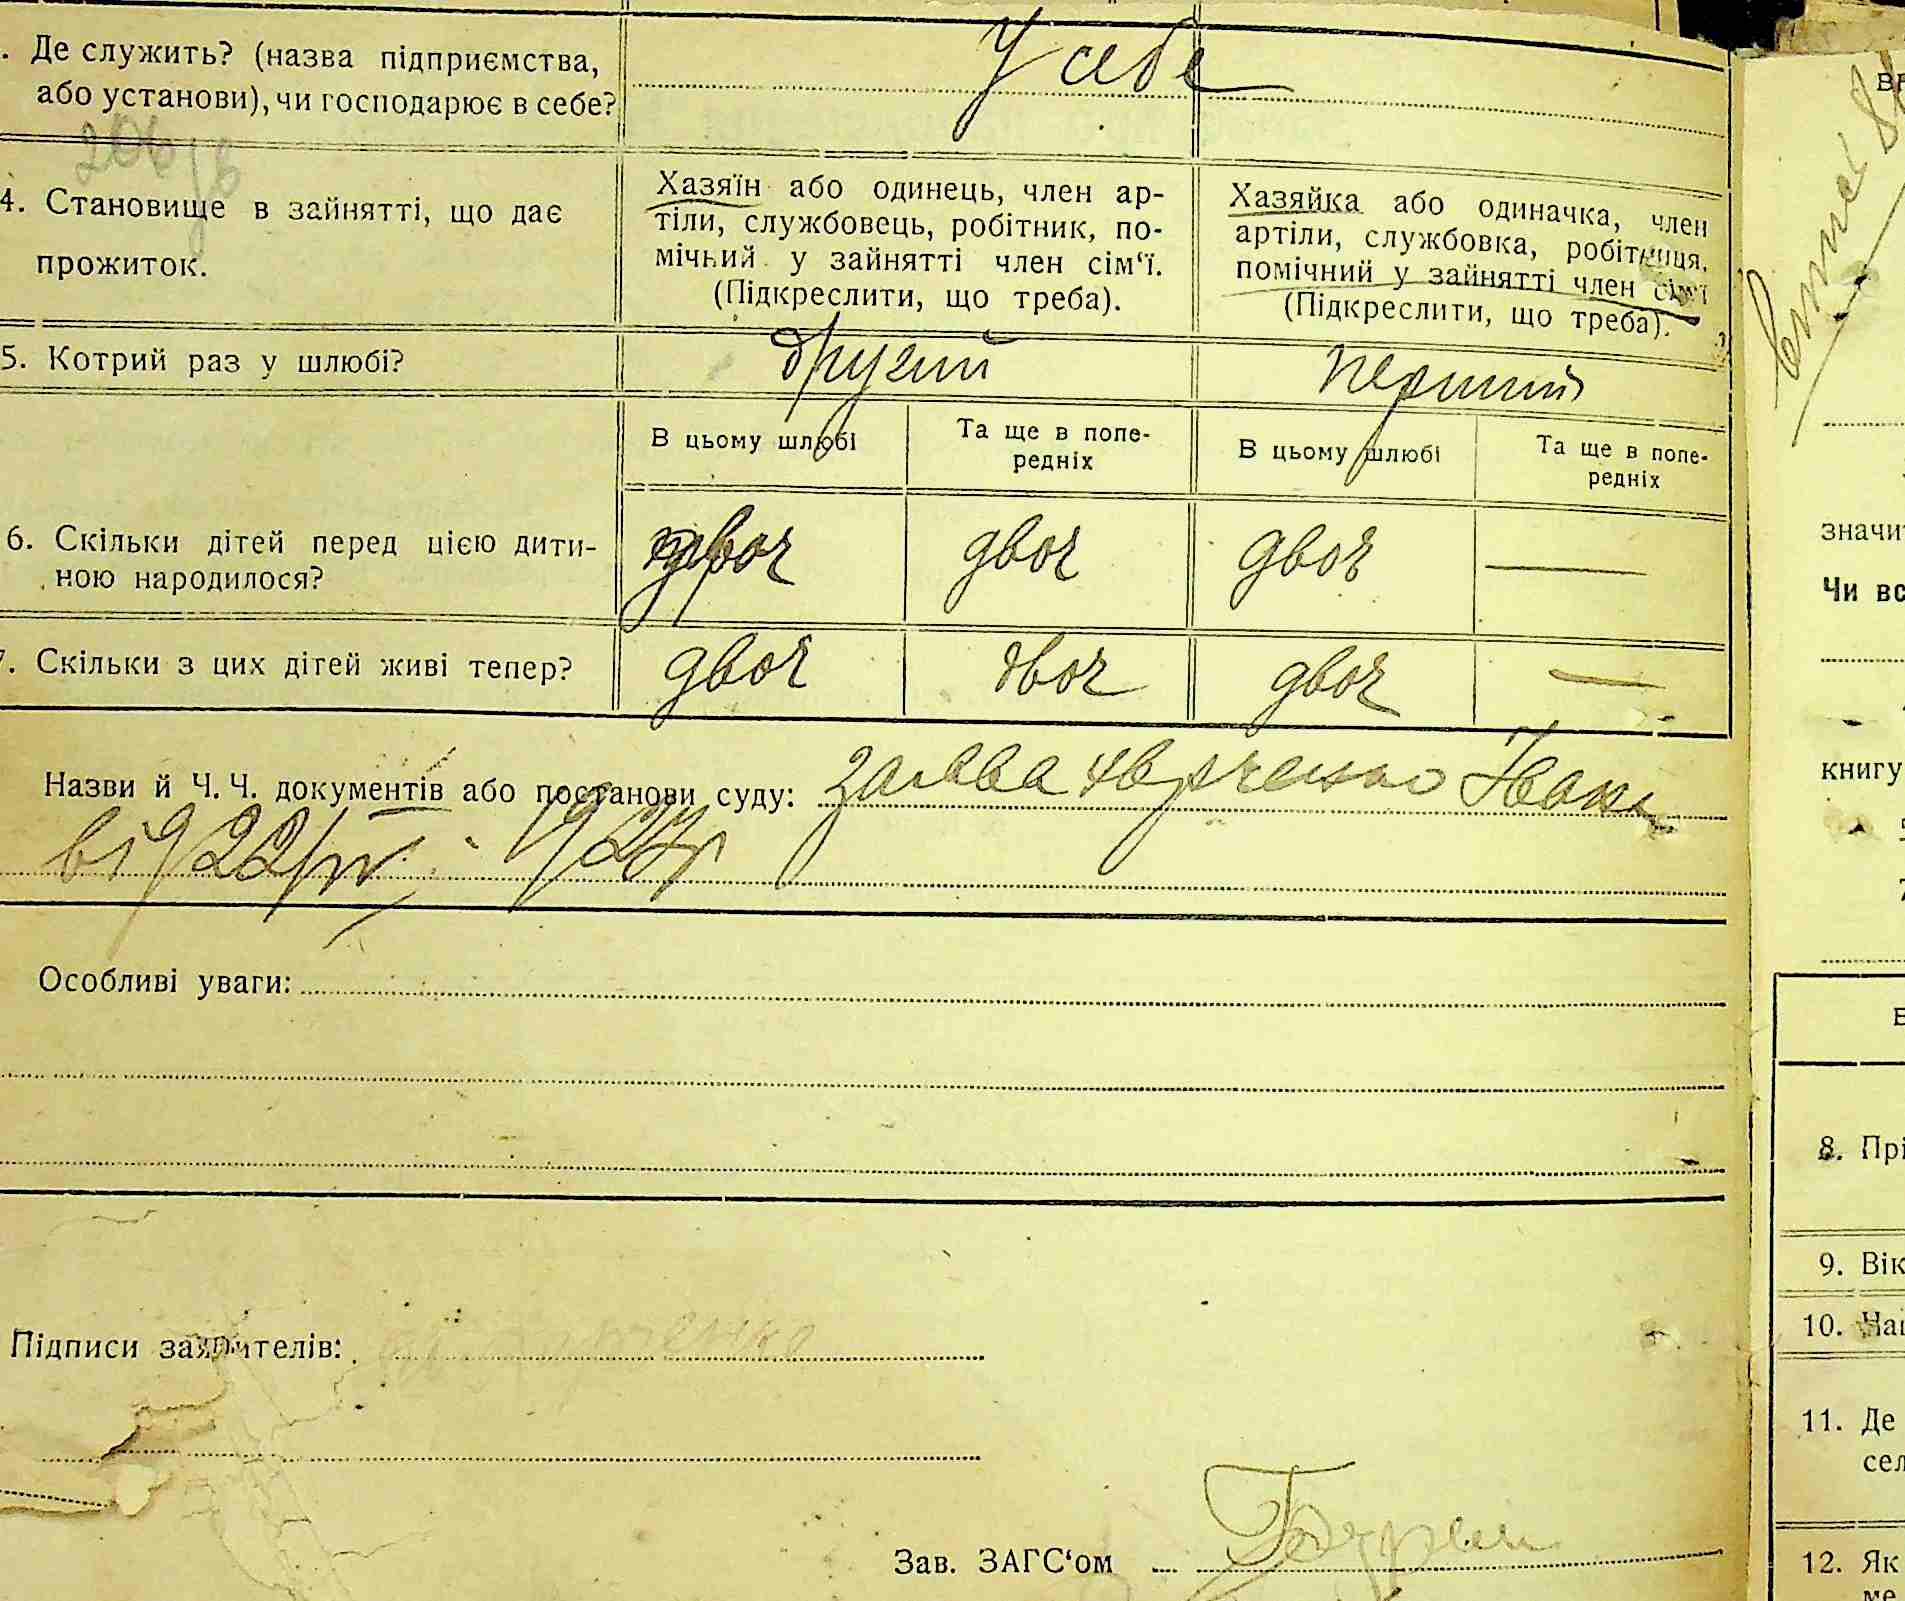 . Де служить? (назва підприємства,
або установи), чи господарює в себе?
У себе
206
4. Становище в зайнятті, що дає
прожиток.
Хазяїн або одинець, член ар-
тіли, службовець, робітник, по-
мічний у зайнятті член сім‘ї.
(Підкреслити, що треба).
Хазяйка або одиначка, член
артіли, службовка, робітниця,
помічний у зайнятті член сім‘ї
(Підкреслити, що треба).
5. Котрий раз у шлюбі?
другий
перший
В цьому шлюбі
Та ще в попе-
редніх
В цьому шлюбі
Та ще в попе-
редніх
6. Скільки дітей перед цією дити-
ною народилося?
двоє
двоє
двоє
—
7. Скільки з цих дітей живі тепер?
двоє
двоє
двоє
—
Назви й Ч. Ч. документів або постанови суду: заява Івана
від 22/IV 1927р
Особливі уваги:
Підписи заявителів:
Зав. ЗАГС‘ом
значи
Чи вс
книгу
8. Прі
9. Вік
10. Нац
11. Де
сел
12. Як
ме